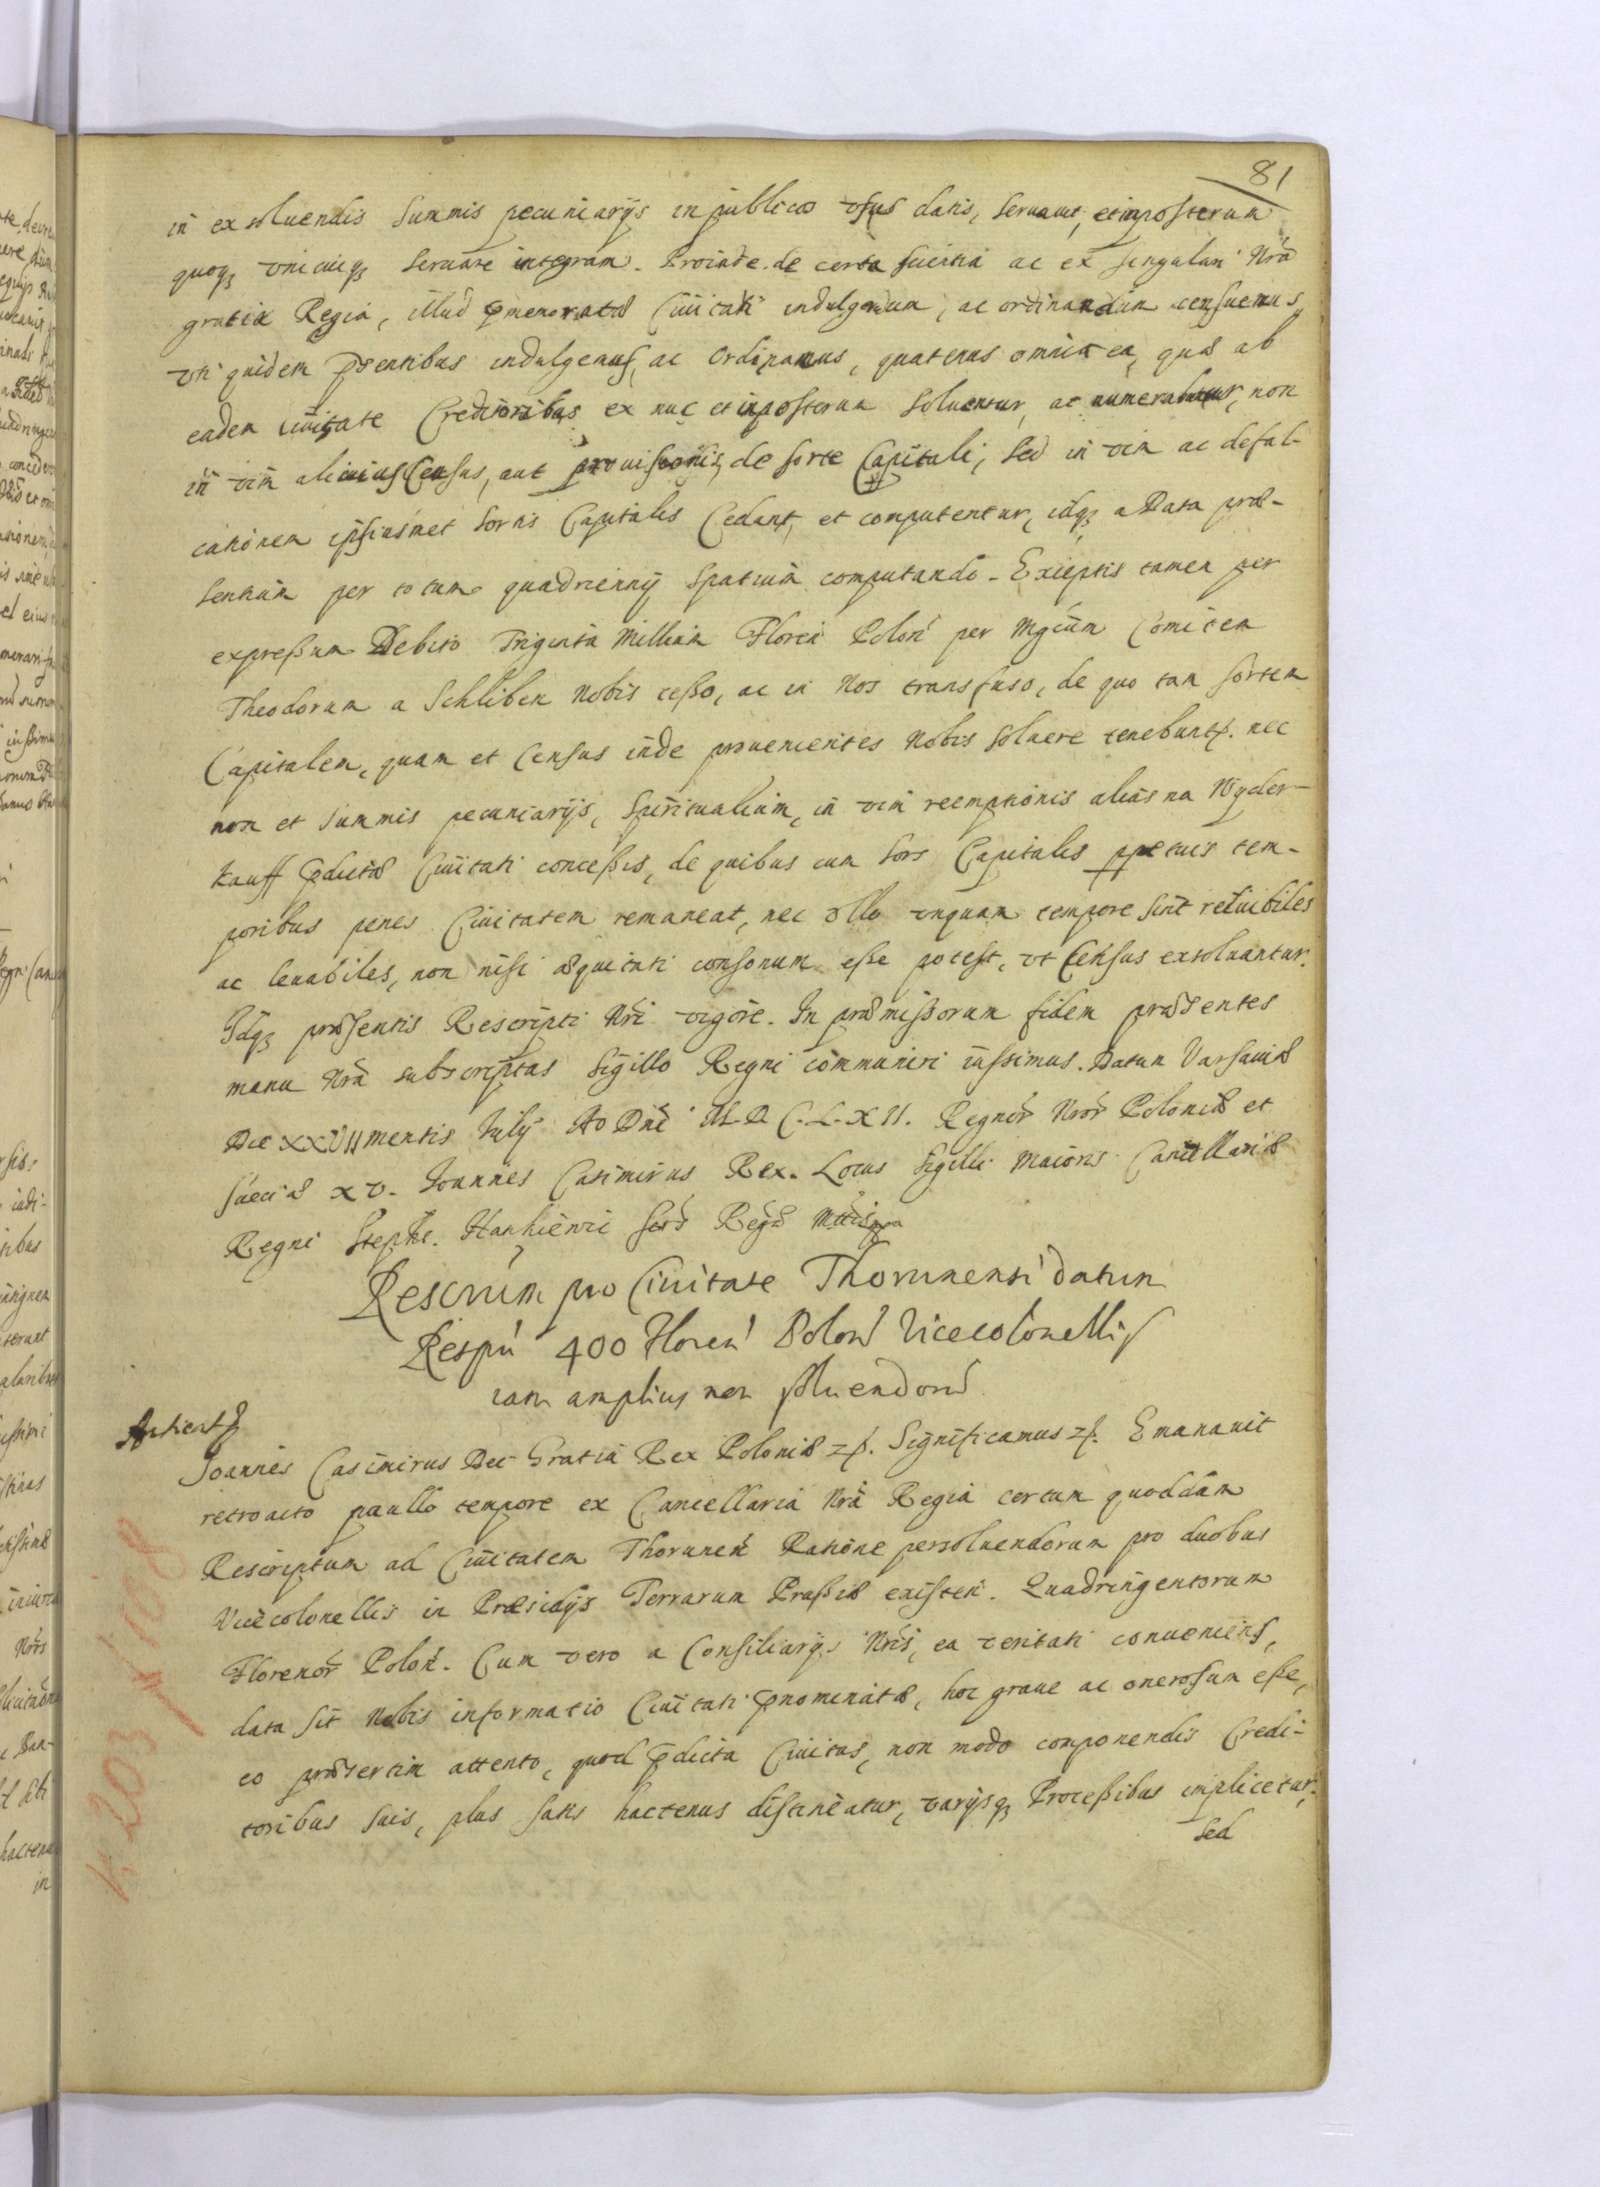 81
in exsoluendis Summis pecuniarijs in publicos vsus datis, seruauit, et inposterum
quoq3 vnicuiq3 seruare integram. Proinde de certa scientia ac ex singulari Nrâ
gratia Regia, illud pmemoratæ Ciuitati indulgendum, ac ordinandum censuemus
vti quidem pntibus indulgemus, ac ordinamus, quatenus omnia ea, quæ ab
eadem ciuitate Creditoribus ex nuc et inposterum soluentur, ac numerabuntur, non
in vim alicuius Census, aut prouisionis, de sorte Capitali, sed in vim ac defal-
cationem ipsiusmet sortis Capitalis Cedant, et computentur, idq3 a Data præ-
sentium per totum quadriennij spatium computando. Exceptis tamen per
expressum Debito Triginta Millium Floren Polon per Mgcum Comitem
Theodorum a Schliben Nobis cesso, ac in Nos transfuso, de quo tam sortem
Capitalem, quam et Census inde prouenientes Nobis soluere tenebuntr. nec
non et summis pecuniarijs, Spiritualium, in vim reemptionis alias na Wyder-
kauff pdictæ Ciuitati concessis, de quibus cum sors Capitalis ppetuis tem-
poribus penes Ciuitatem remaneat, nec vllo vnquam tempore sint reluibiles
ac leuabiles, non nisi æquitati consonum esse potest, vt Census exsoluantur.
Idq3 præsentis Rescripti Nri vigore. In præmissorum fidem præsentes
manu Nrâ subscriptas Sigillo Regni communiri iussimus. Datum Varsauiæ
Die XXVII mensis Iulij Ao Dni M.D.C.L.XII. Regnor Nror Poloniæ et
Sueciæ XV. Ioannes Casimirus Rex. Locus Sigilli Maioris Cancellariæ
Regni Stephs. Hankiewic Secr Regæ Mttis mpa
Rescrim pro Ciuitate Thorunensi datum
Respu 400 Floren Polon Vicecolonellis
iam amplius non soluendor
Ioannes Casimirus Dei Gratia Rex Poloniæ zc. Significamus zc. Emanauit
retroacto paullo tempore ex Cancellaria Nrâ Regia certum quoddam
Rescriptum ad Ciuitatem Thorunen Ratione persoluendorum pro duobus
Vicecolonellis in Præsidijs Terrarum Prussiæ existen. Quadringentorum
Florenor Polon. Cum vero a Consiliarijs Nris, ea veritati conueniens,
data sit Nobis informatio Ciuitati pnominatæ, hoc graue ac onerosum esse,
eo præsertim attento, quod pdicta Ciuitas, non modo componendis Credi-
toribus suis, plus satis hactenus distineatur, varijsq3 Processibus implicetur,
sed